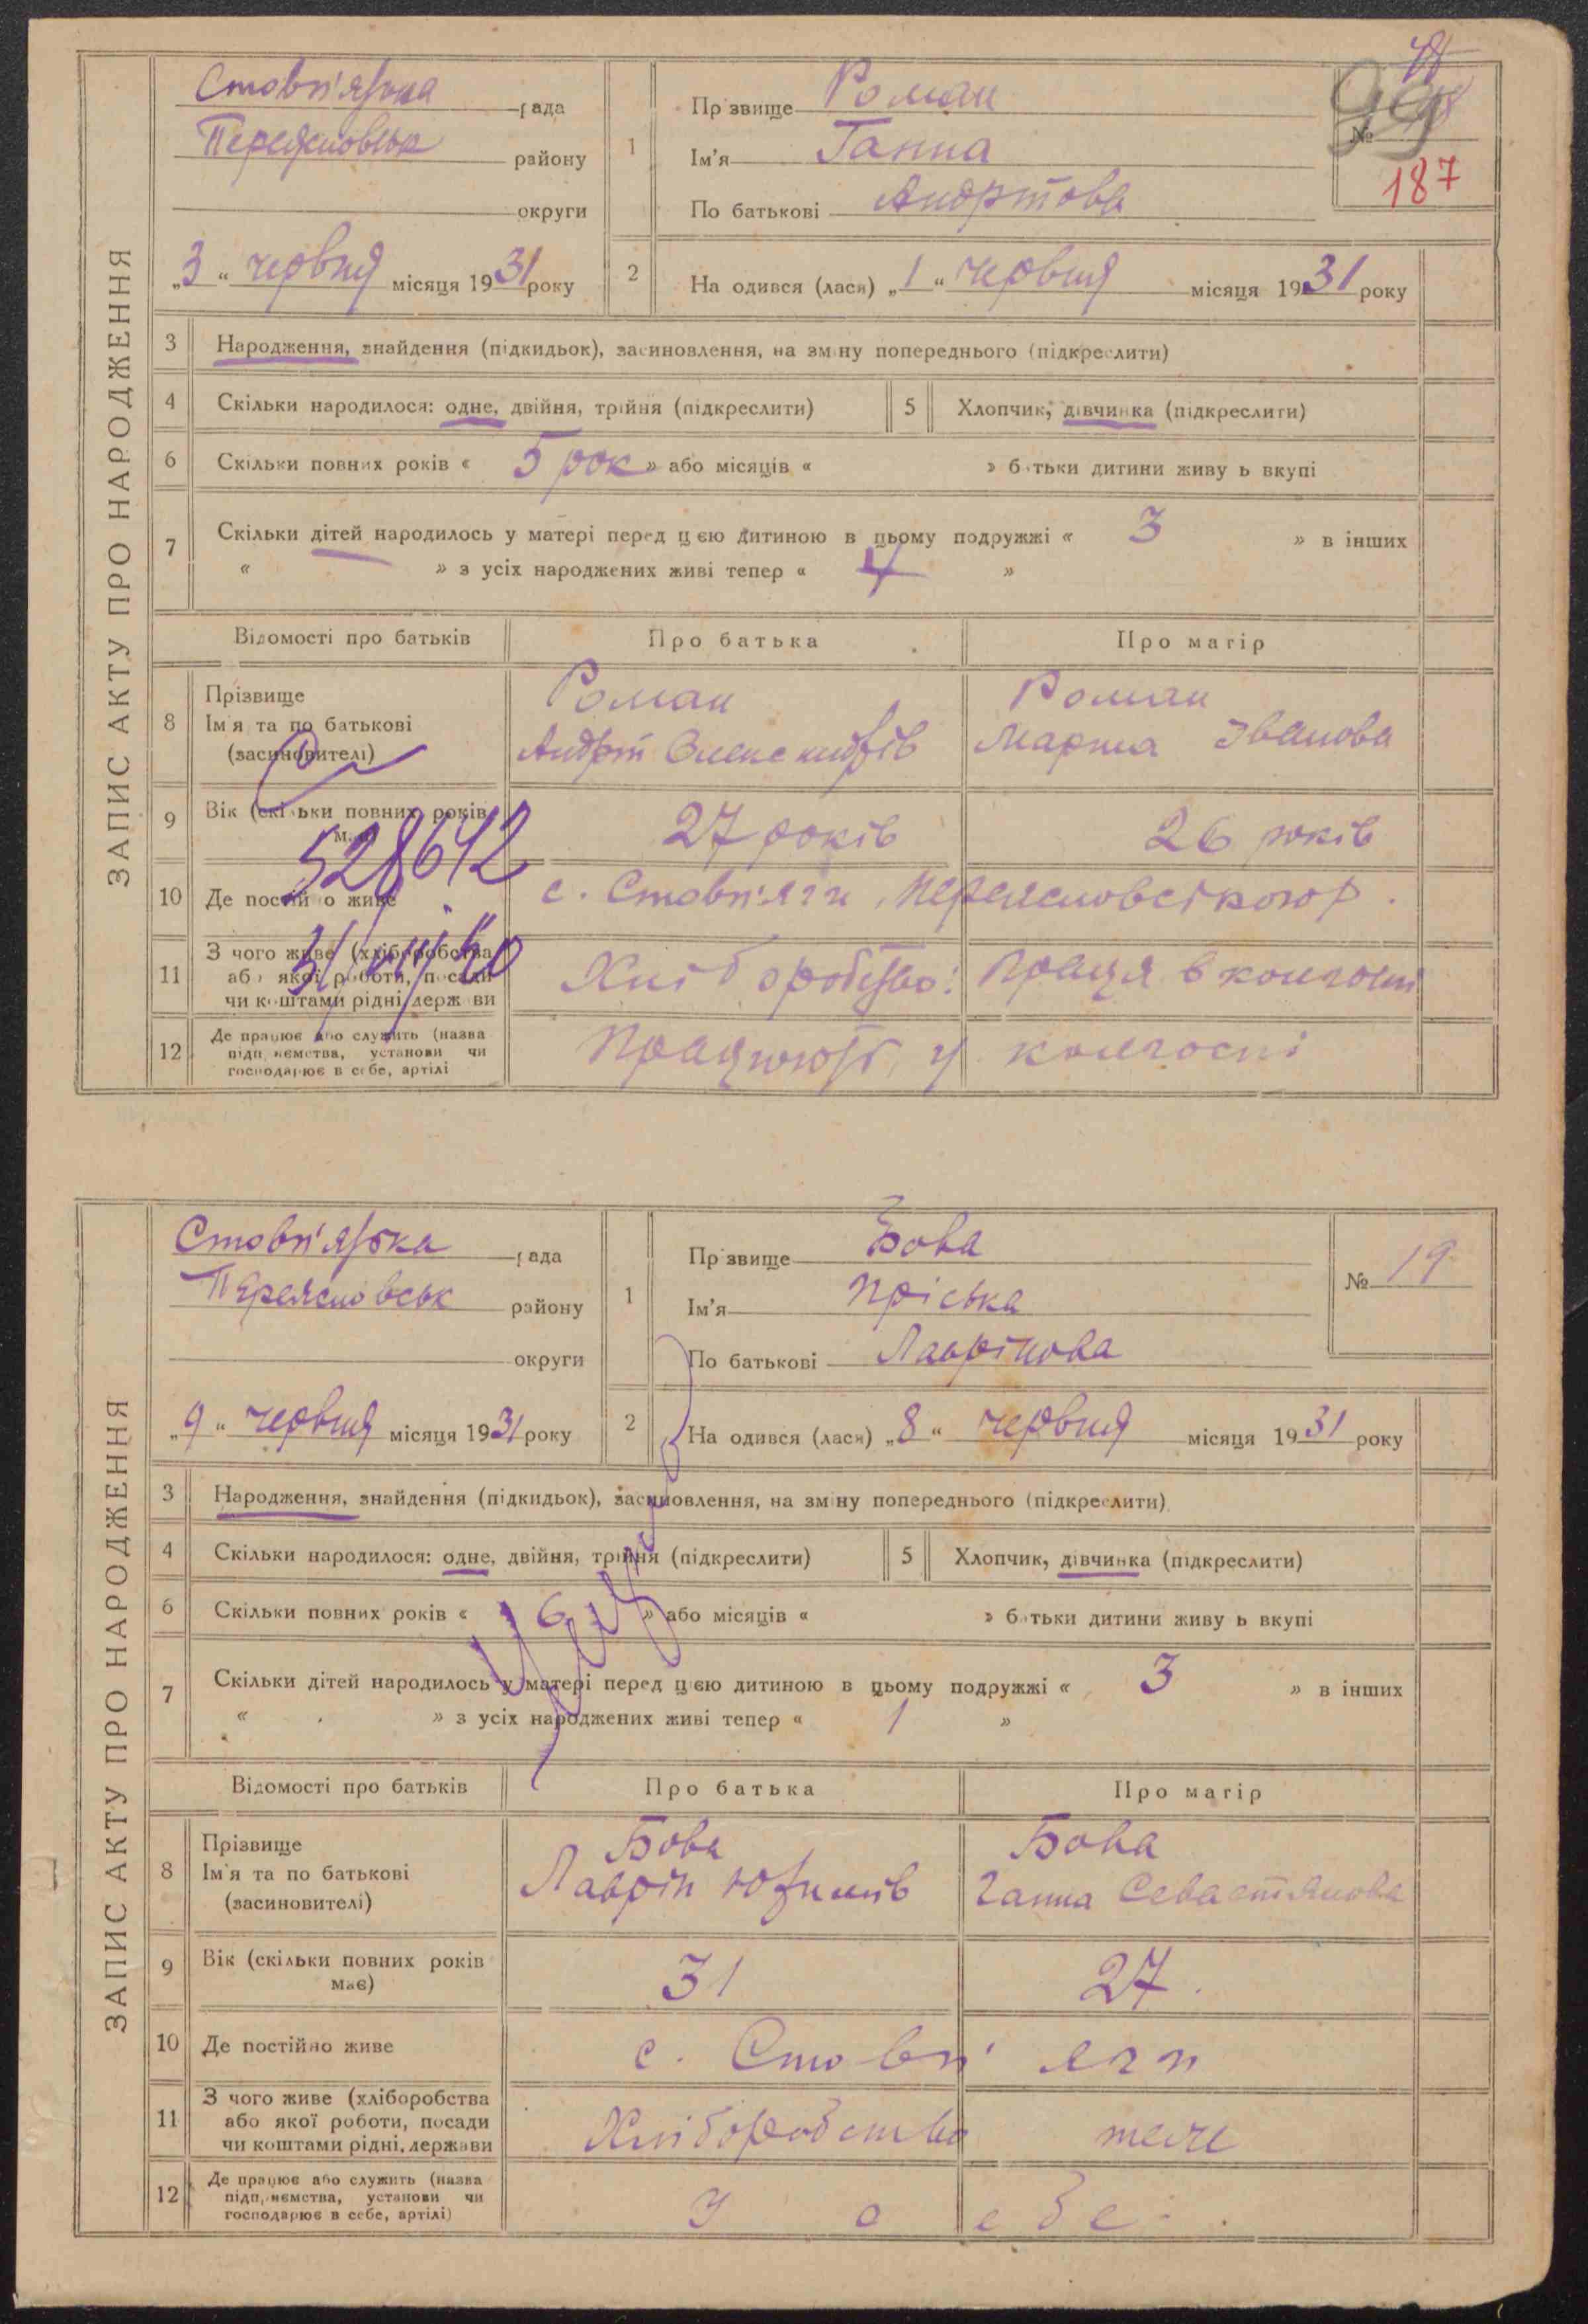 ЗАПИС АКТУ ПРО НАРОДЖЕННЯ
Стовп'язька рада
Переяславськ району
округи
„3“ червня місяця 1931 року
1 Прізвище Роман
Ім'я Ганна
По батькові Андрітова
№
187
2 Народився (лася) „1“ червня місяця 1931 року
3 Народження, знайдення (підкидьок), засиновлення, на зміну попереднього (підкреслити)
4 Скільки народилося: одне, двійня, трійня (підкреслити) 5 Хлопчик, дівчинка (підкреслити)
6 Скільки повних років « 5 рок » або місяців « » батьки дитини живуть вкупі
7 Скільки дітей народилось у матері перед цією дитиною в цьому подружжі « 3 » в інших
« » з усіх народжених живі тепер « 4 »
Відомості про батьків Про батька Про матір
8 Прізвище
Ім'я та по батькові
(засиновителі)
Роман
Андріт Олександрів
Роман
Марта Іванова
9 Вік (скільки повних років має) 27 років 26 років
528642
10 Де постійно живе с. Стовп'яги, Переясловського р.
11 З чого живе (хліборобства
або якої роботи, посади
чи коштами рідні, держави
Хліборобство: праця в колгоспі
12 Де працює або служить (назва
підприємства, установи чи
господарює в себе, артілі
Працюють у колгоспі
ЗАПИС АКТУ ПРО НАРОДЖЕННЯ
Стовп'язька рада
Переясловськ району
округи
„9“ червня місяця 1931 року
1 Прізвище Бова
Ім'я Пріська
По батькові Лаврінова
№ 19
2 Народився (лася) „8“ червня місяця 1931 року
3 Народження, знайдення (підкидьок), засиновлення, на зміну попереднього (підкреслити)
4 Скільки народилося: одне, двійня, трійня (підкреслити) 5 Хлопчик, дівчинка (підкреслити)
6 Скільки повних років « 6 » або місяців « » батьки дитини живуть вкупі
7 Скільки дітей народилось у матері перед цією дитиною в цьому подружжі « 3 » в інших
« » з усіх народжених живі тепер « 1 »
Відомості про батьків Про батька Про матір
8 Прізвище
Ім'я та по батькові
(засиновителі)
Бова
Лаврін Юхимів
Бова
Ганна Севастянова
9 Вік (скільки повних років
має)
31 27.
10 Де постійно живе с. Стовп'яги
11 З чого живе (хліборобства
або якої роботи, посади
чи коштами рідні, держави
Хліборобство теж
12 Де працює або служить (назва
підприємства, установи чи
господарює в себе, артілі)
У себе.